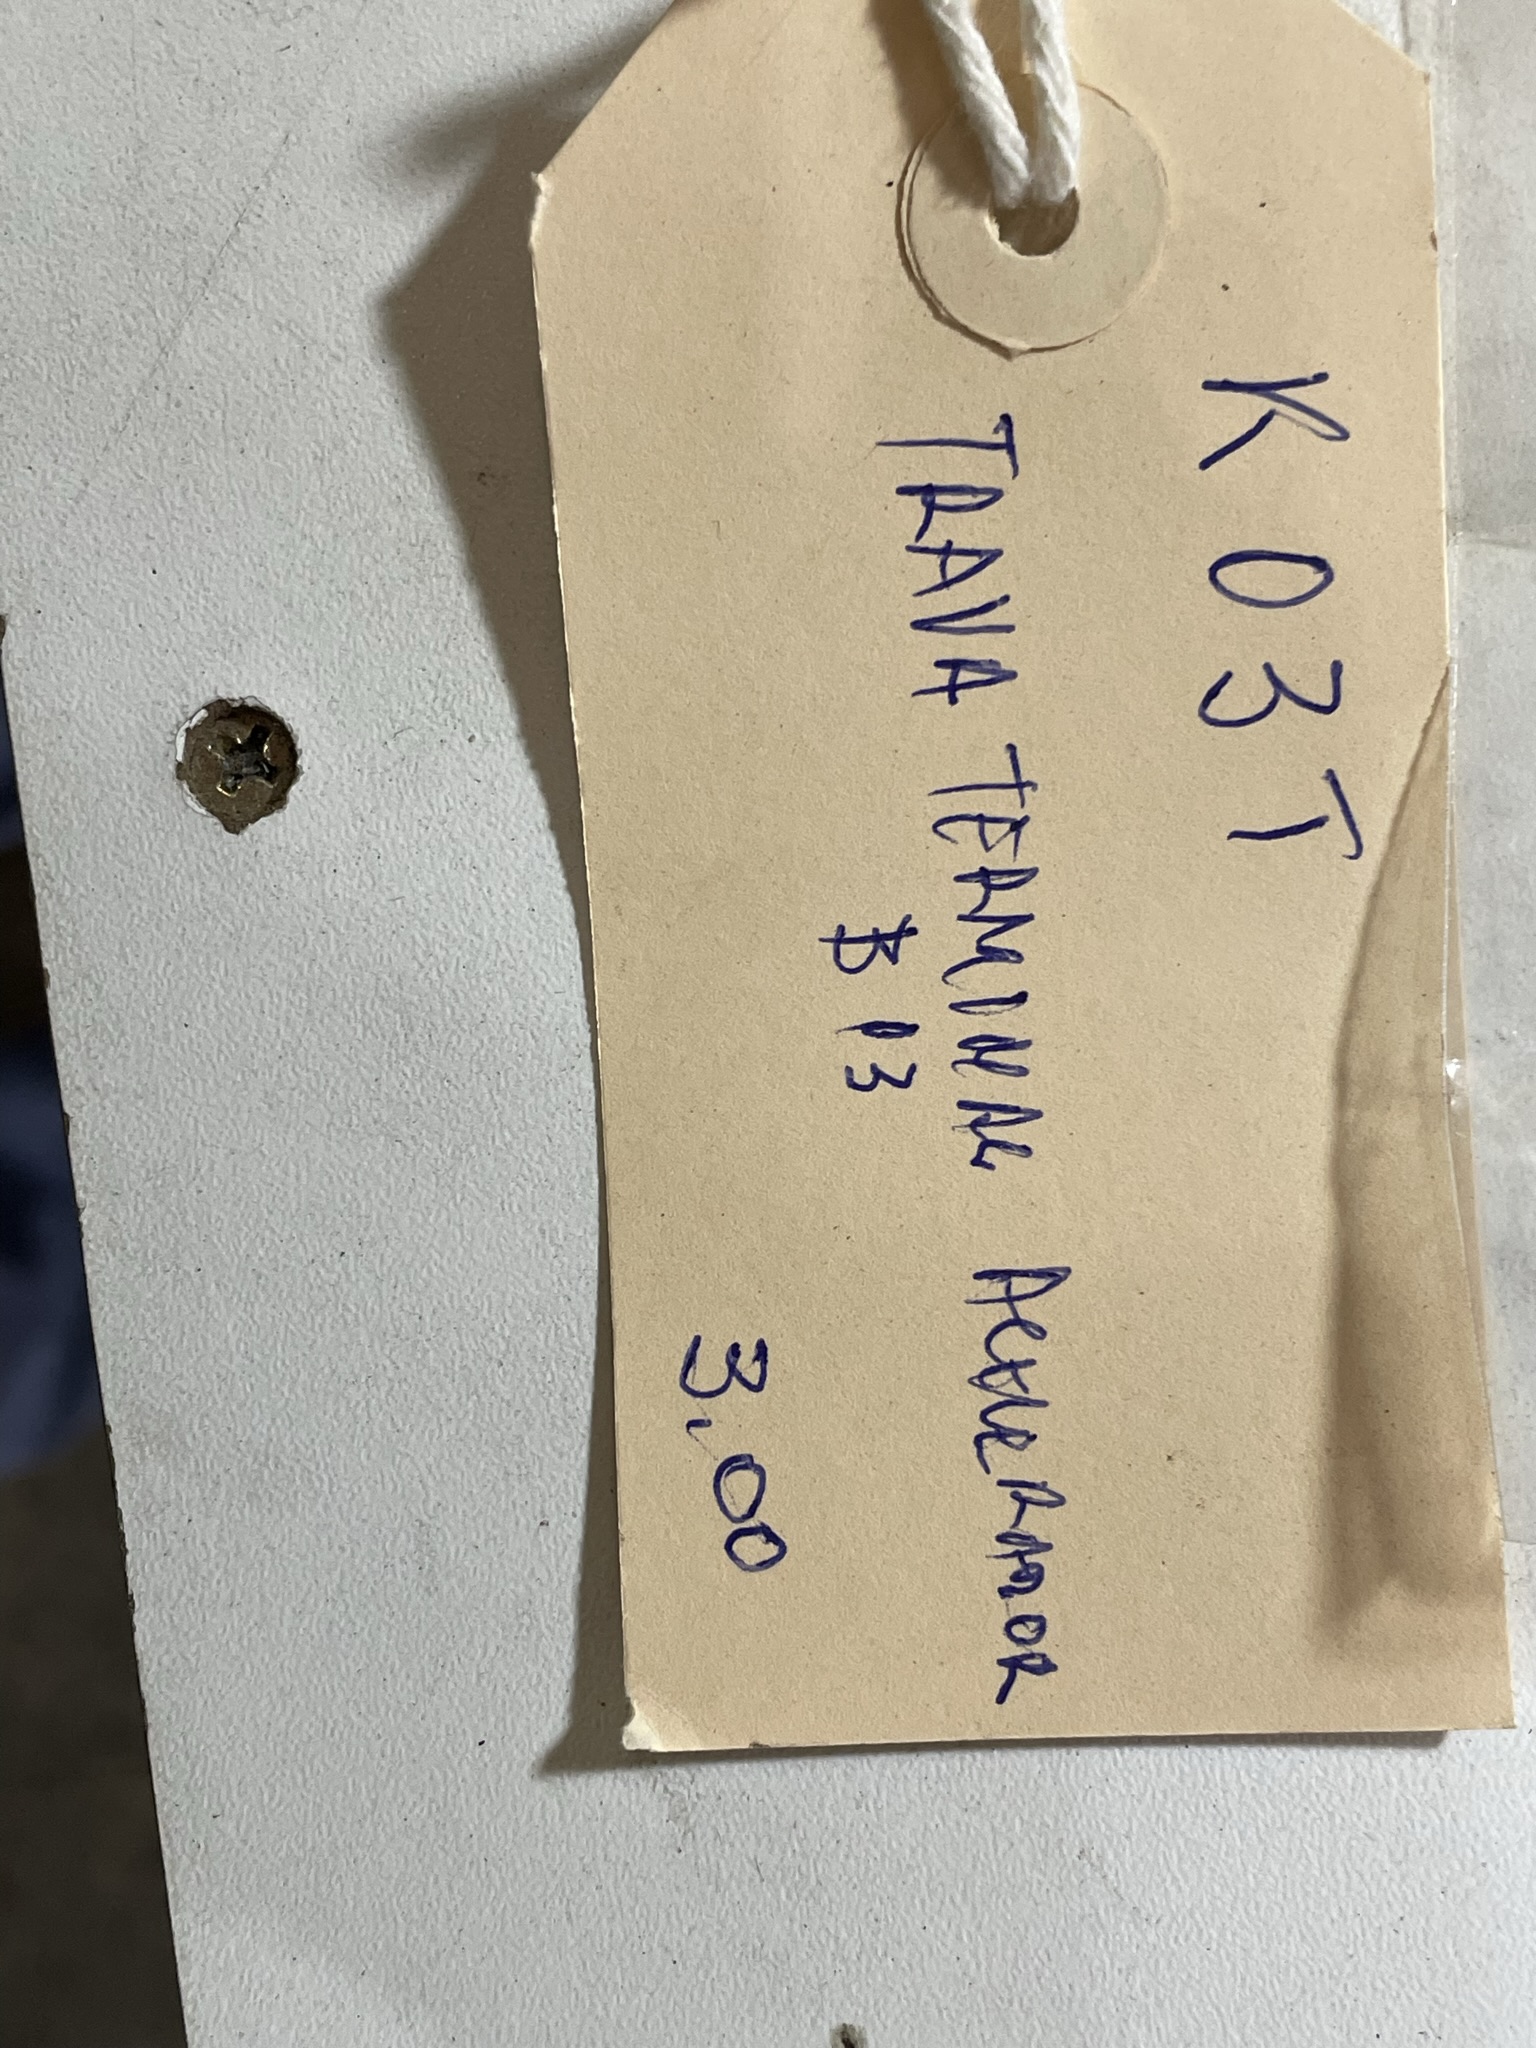 K 03T
TRAVA TERMINAL ACELERADOR
B 13
3,00